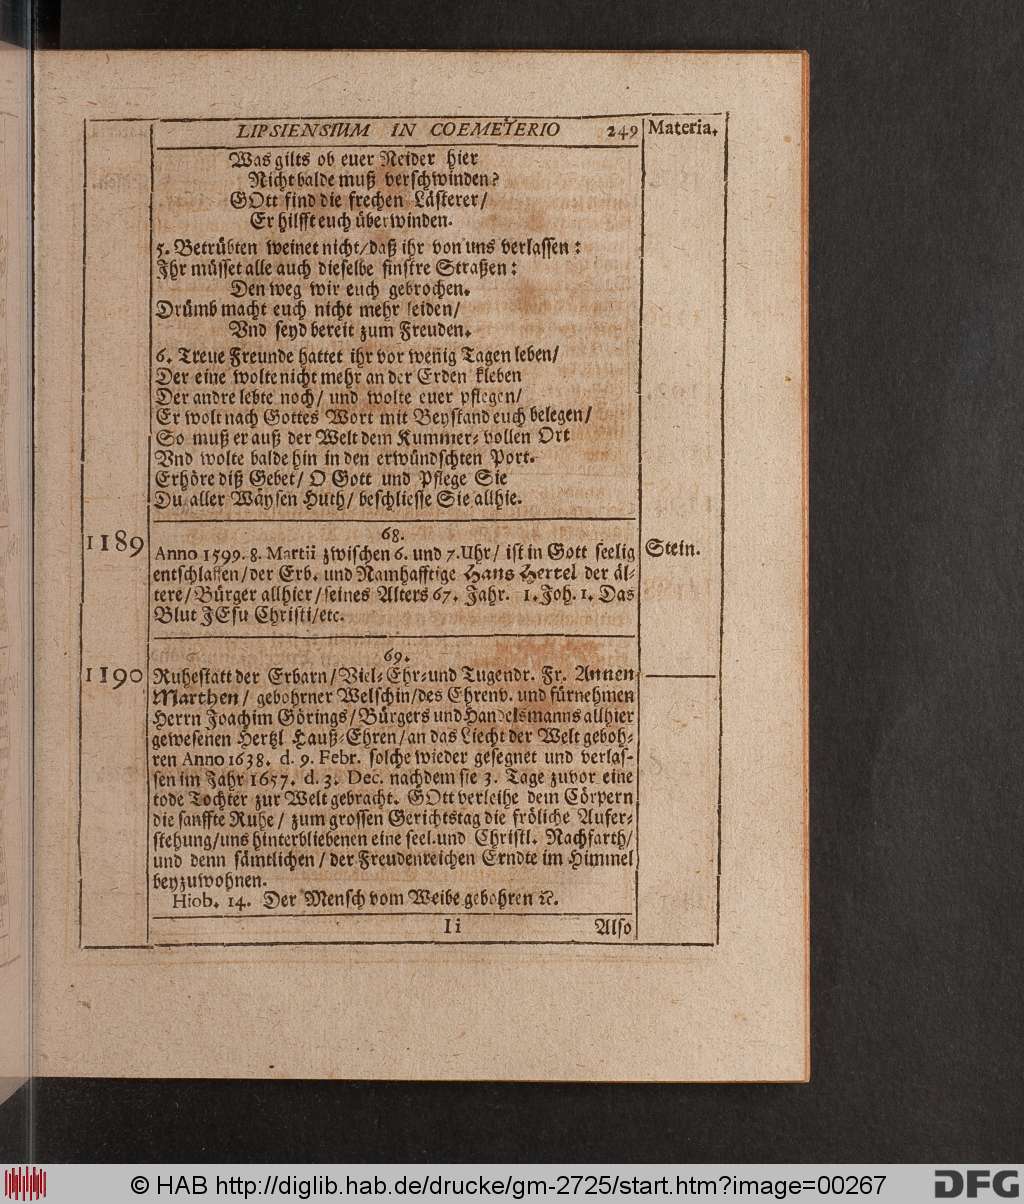 LIPSIENSIUM IN COEMETERIO 249 Materia.
Was gilts ob euer Neider hier
Nicht balde muß verschwinden?
GOtt find die frechen Lästerer/
Er hilfft euch überwinden.
5. Betrübten weinet nicht/daß ihr von uns verlassen:
Ihr müsset alle auch dieselbe finstre Straßen:
Den weg wir euch gebrochen.
Drümb macht euch nicht mehr leiden/
Vnd seyd bereit zum Freuden.
6. Treue Freunde hattet ihr vor wenig Tagen leben/
Der eine wolte nicht mehr an der Erden kleben
Der andre lebte noch/ und wolte euer pflegen/
Er wolt nach Gottes Wort mit Beystand euch belegen/
So muß er auß der Welt dem Kummer-vollen Ort
Vnd wolte balde hin in den erwündschten Port.
Erhöre diß Gebet/ O Gott und Pflege Sie
Du aller Wäysen Huth/ beschliesse Sie allhie.
68.
1189 Anno 1599. 8. Martii zwischen 6. und 7. Uhr/ ist in Gott seelig Stein.
entschlaffen/der Erb. und Namhafftige Hans Hertel der äl-
tere/Bürger allhier/seines Alters 67. Jahr. 1. Joh. 1. Das
Blut JEsu Christi/etc.
69.
1190 Ruhestatt der Erbarn/Viel-Ehr-und Tugendr. Fr. Annen
Marthen/ gebohrner Welschin/des Ehrenv. und fürnehmen
Herrn Joachim Görings/Bürgers und Handelsmanns allhier
gewesenen Hertzl Hauß-Ehren/an das Liecht der Welt geboh-
ren Anno 1638. d. 9. Febr. solche wieder gesegnet und verlas-
sen im Jahr 1657. d. 3. Dec. nachdem sie 3. Tage zuvor eine
tode Tochter zur Welt gebracht. GOtt verleihe dem Cörpern
die sanffte Ruhe/ zum grossen Gerichtstag die fröliche Aufer-
stehung/uns hinterbliebenen eine seel. und Christl. Nachfarth/
und denn sämtlichen/ der Freudenreichen Erndte im Himmel
beyzuwohnen.
Hiob. 14. Der Mensch vom Weibe gebohren ꝛc.
Ii Also
© HAB http://diglib.hab.de/drucke/gm-2725/start.htm?image=00267 DFG